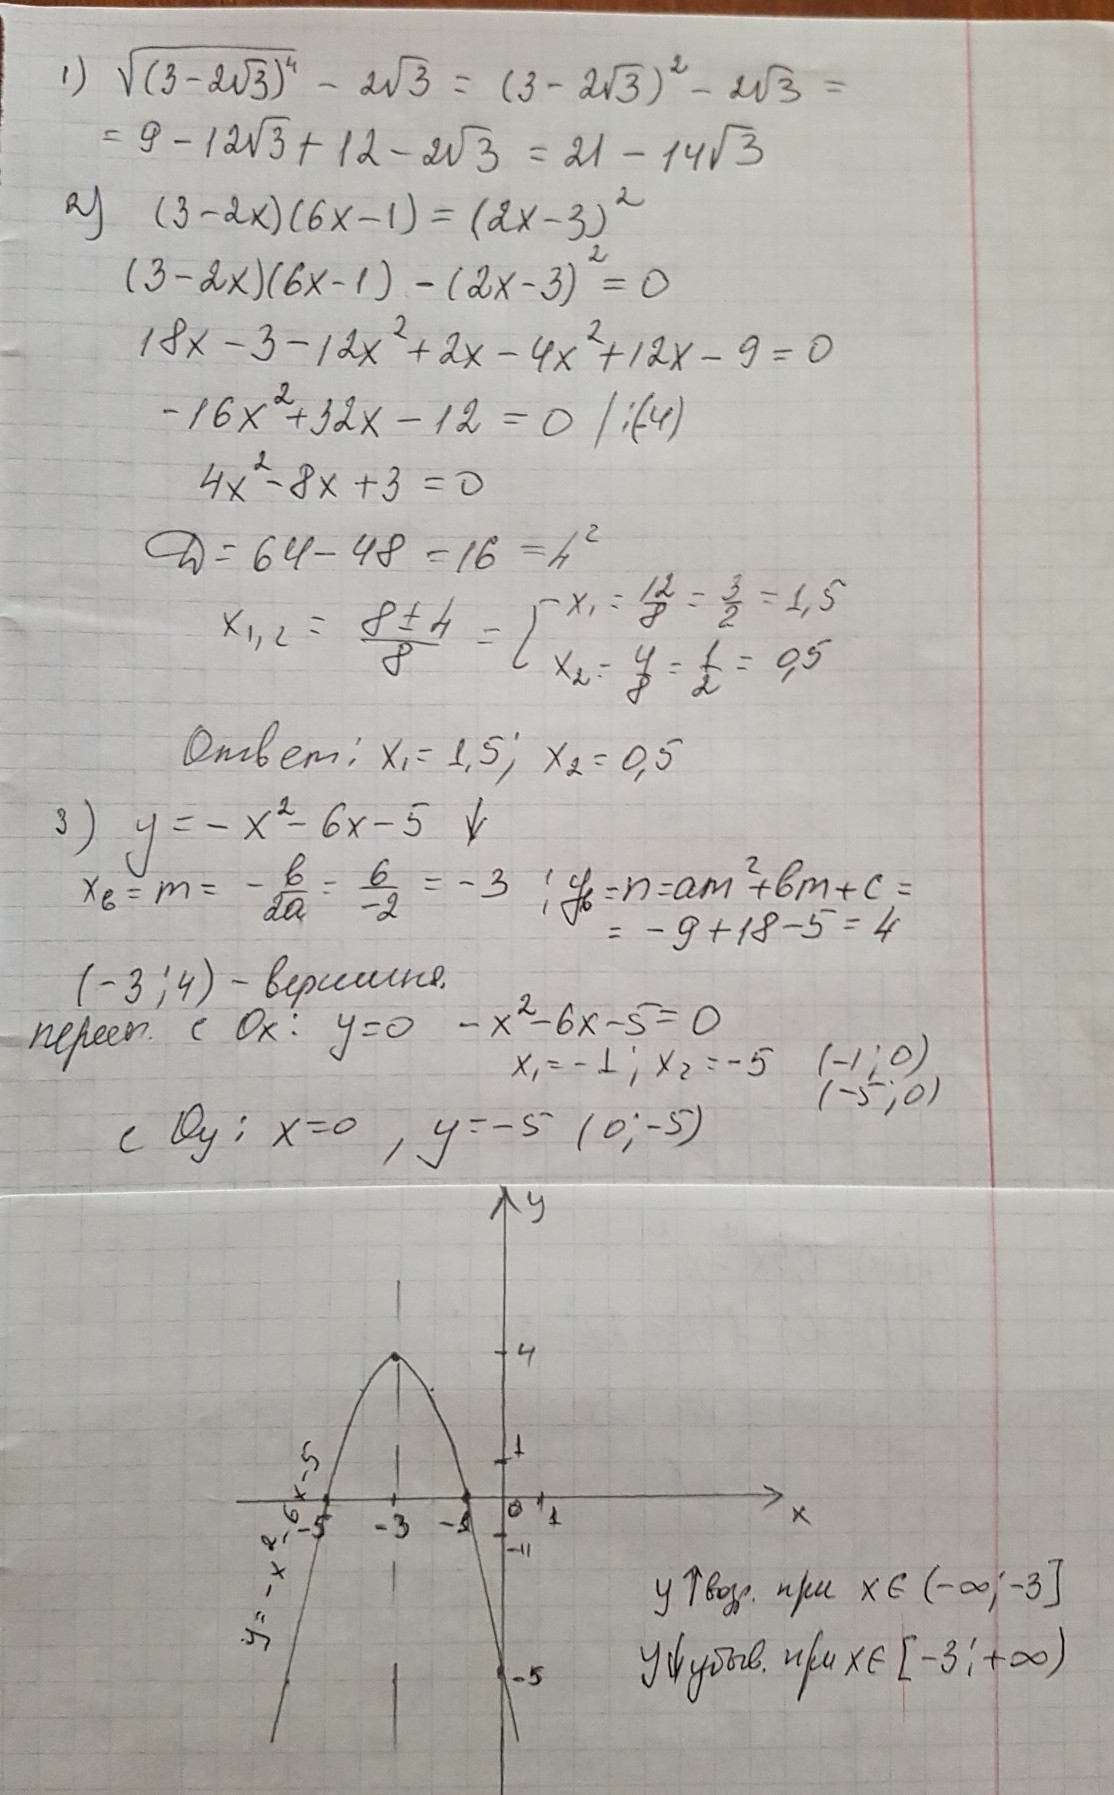 1) √(3-2√3)⁴ - 2√3 = (3-2√3)² - 2√3 =
= 9 - 12√3 + 12 - 2√3 = 21 - 14√3
2) (3-2x)(6x-1) = (2x-3)²
(3-2x)(6x-1) - (2x-3)² = 0
18x - 3 - 12x² + 2x - 4x² + 12x - 9 = 0
-16x² + 32x - 12 = 0 /:(-4)
4x² - 8x + 3 = 0
D = 64 - 48 = 16 = 4²
x₁,₂ = (8±4)/8 = [ x₁ = 12/8 = 3/2 = 1,5
x₂ = 4/8 = 1/2 = 0,5
Ответ: x₁ = 1,5; x₂ = 0,5
3) y = -x² - 6x - 5 ↓
xв = m = -b/2a = 6/-2 = -3 ; yв = n = am² + bm + c =
= -9 + 18 - 5 = 4
(-3; 4) - вершина.
перес. с Ox: y=0 -x² - 6x - 5 = 0
x₁ = -1; x₂ = -5 (-1; 0)
(-5; 0)
с Oy: x=0, y=-5 (0; -5)
y
4
1
-5 -3 -1 0 1
x
-1
-5
y = -x² - 6x - 5
y↑ возр. при x ∈ (-∞; -3]
y↓ убыв. при x ∈ [-3; +∞)